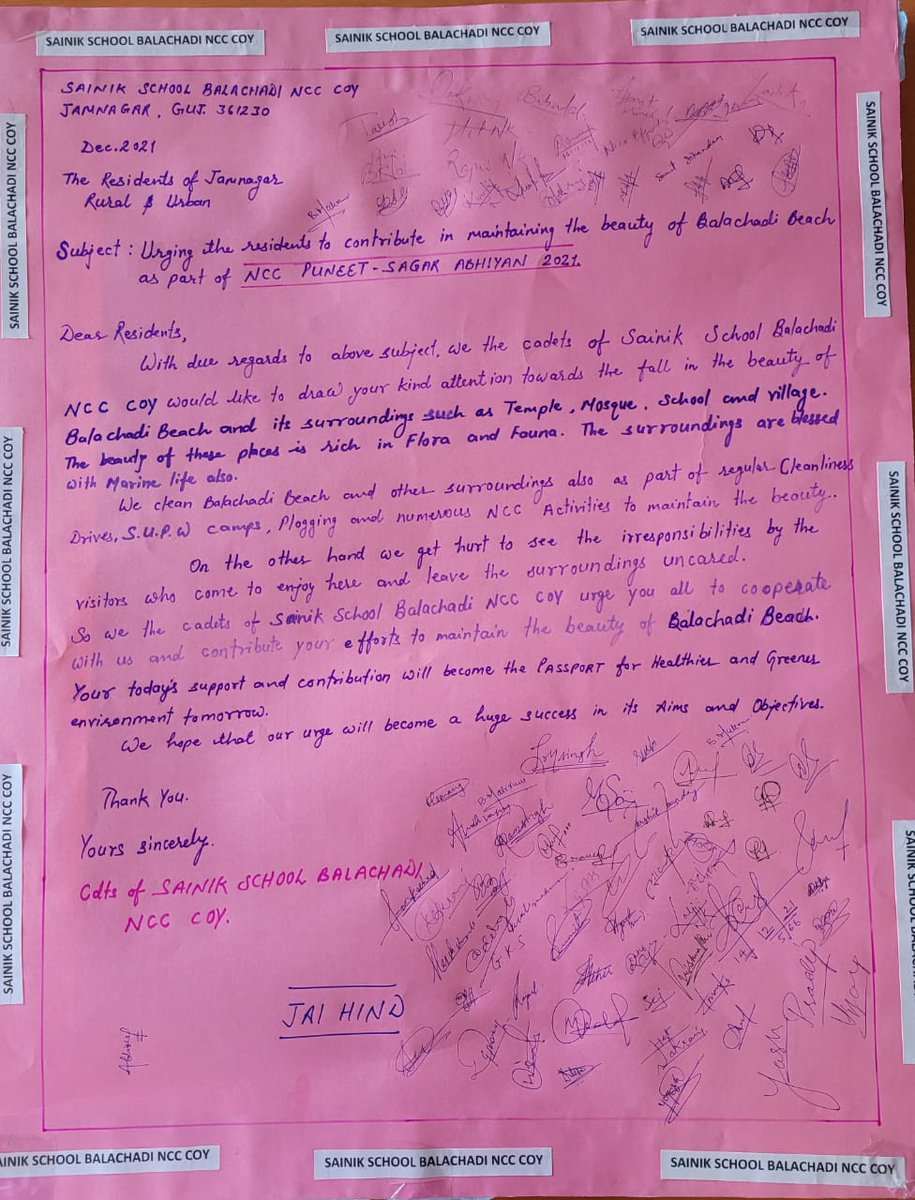 SAINIK SCHOOL BALACHADI NCC COY
SAINIK SCHOOL BALACHADI NCC COY
SAINIK SCHOOL BALACHADI NCC COY
SAINIK SCHOOL BALACHADI NCC COY
JAMNAGAR, GUJ. 361230
Dec. 2021
The Residents of Jamnagar
Rural & Urban
Subject : Urging the residents to contribute in maintaining the beauty of Balachadi Beach
as part of NCC PUNEET-SAGAR ABHIYAN 2021.
Dear Residents,
With due regards to above subject, we the cadets of Sainik School Balachadi
NCC COY would like to draw your kind attention towards the fall in the beauty of
Balachadi Beach and its surroundings such as Temple, Mosque, School and village.
The beauty of these places is rich in Flora and Fauna. The surroundings are blessed
with Marine life also.
We clean Balachadi Beach and other surroundings also as part of regular Cleanliness
Drives, S.U.P.W camps, Plogging and numerous NCC Activities to maintain the beauty.
On the other hand we get hurt to see the irresponsibilities by the
visitors who come to enjoy here and leave the surroundings uncared.
So we the cadets of Sainik School Balachadi NCC COY urge you all to cooperate
with us and contribute your efforts to maintain the beauty of Balachadi Beach.
Your today's support and contribution will become the PASSPORT for Healthier and Greener
environment tomorrow.
We hope that our urge will become a huge success in its Aims and Objectives.
Thank You.
Yours sincerely.
Cdts of SAINIK SCHOOL BALACHADI
NCC COY.
JAI HIND
G.K.S
Yash
Pradip
SAINIK SCHOOL BALACHADI NCC COY
SAINIK SCHOOL BALACHADI NCC COY
SAINIK SCHOOL BALACHADI NCC COY
SAINIK SCHOOL BALACHADI NCC COY
SAINIK SCHOOL BALACHADI NCC COY
AINIK SCHOOL BALACHADI NCC COY
SAINIK SCHOOL BALACHADI NCC COY
SAINIK SCHOOL BALACHADI NCC COY